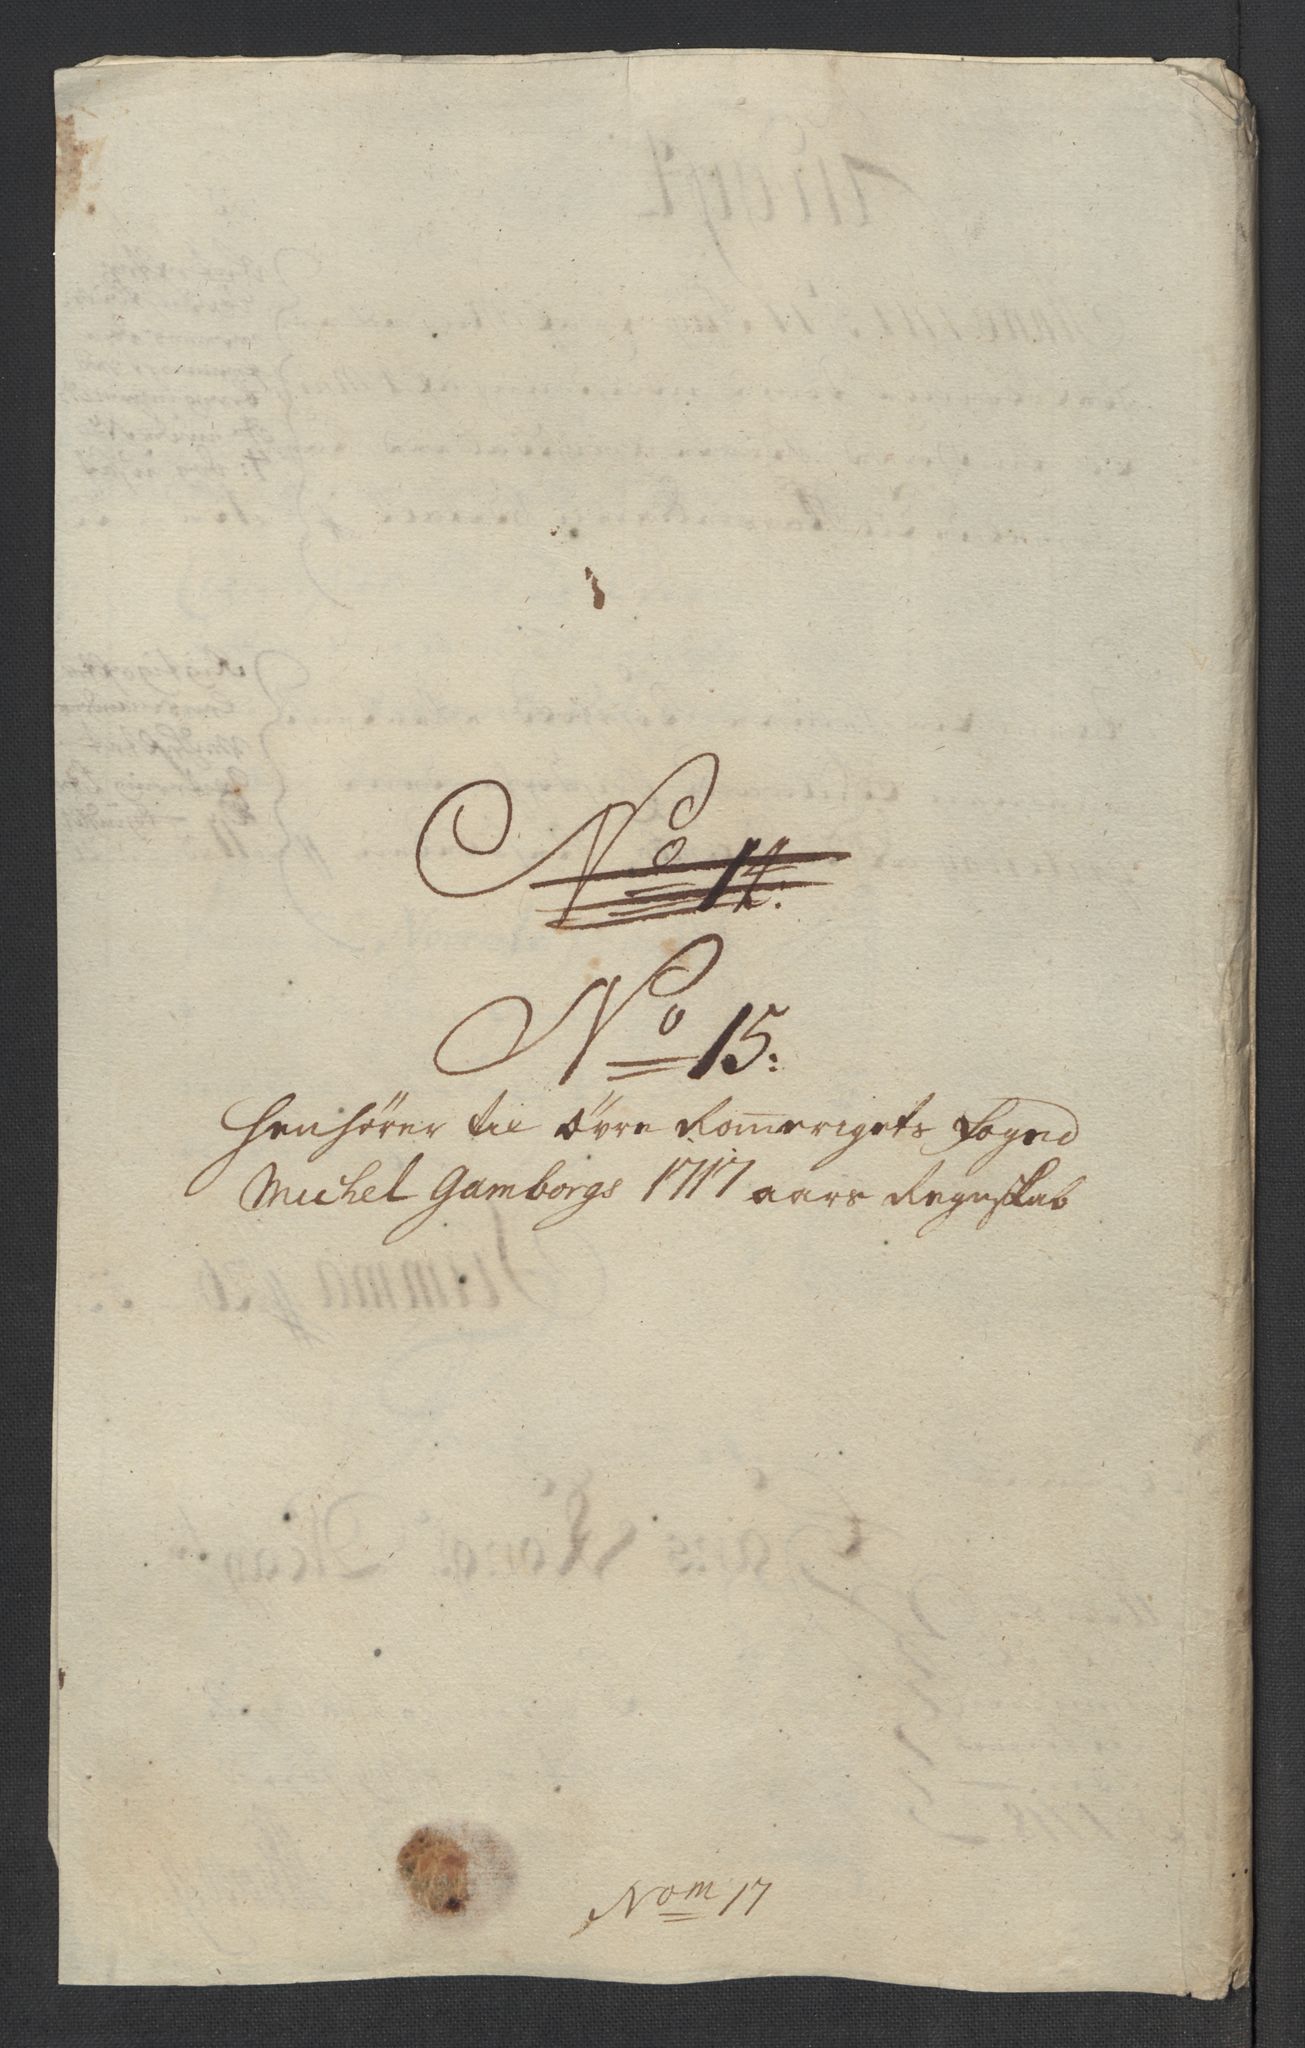 No 14:
No 15:
henhører til øvre Romerigets Foged
Michel Gamborgs 1717 aars Regnskab
Nom 17